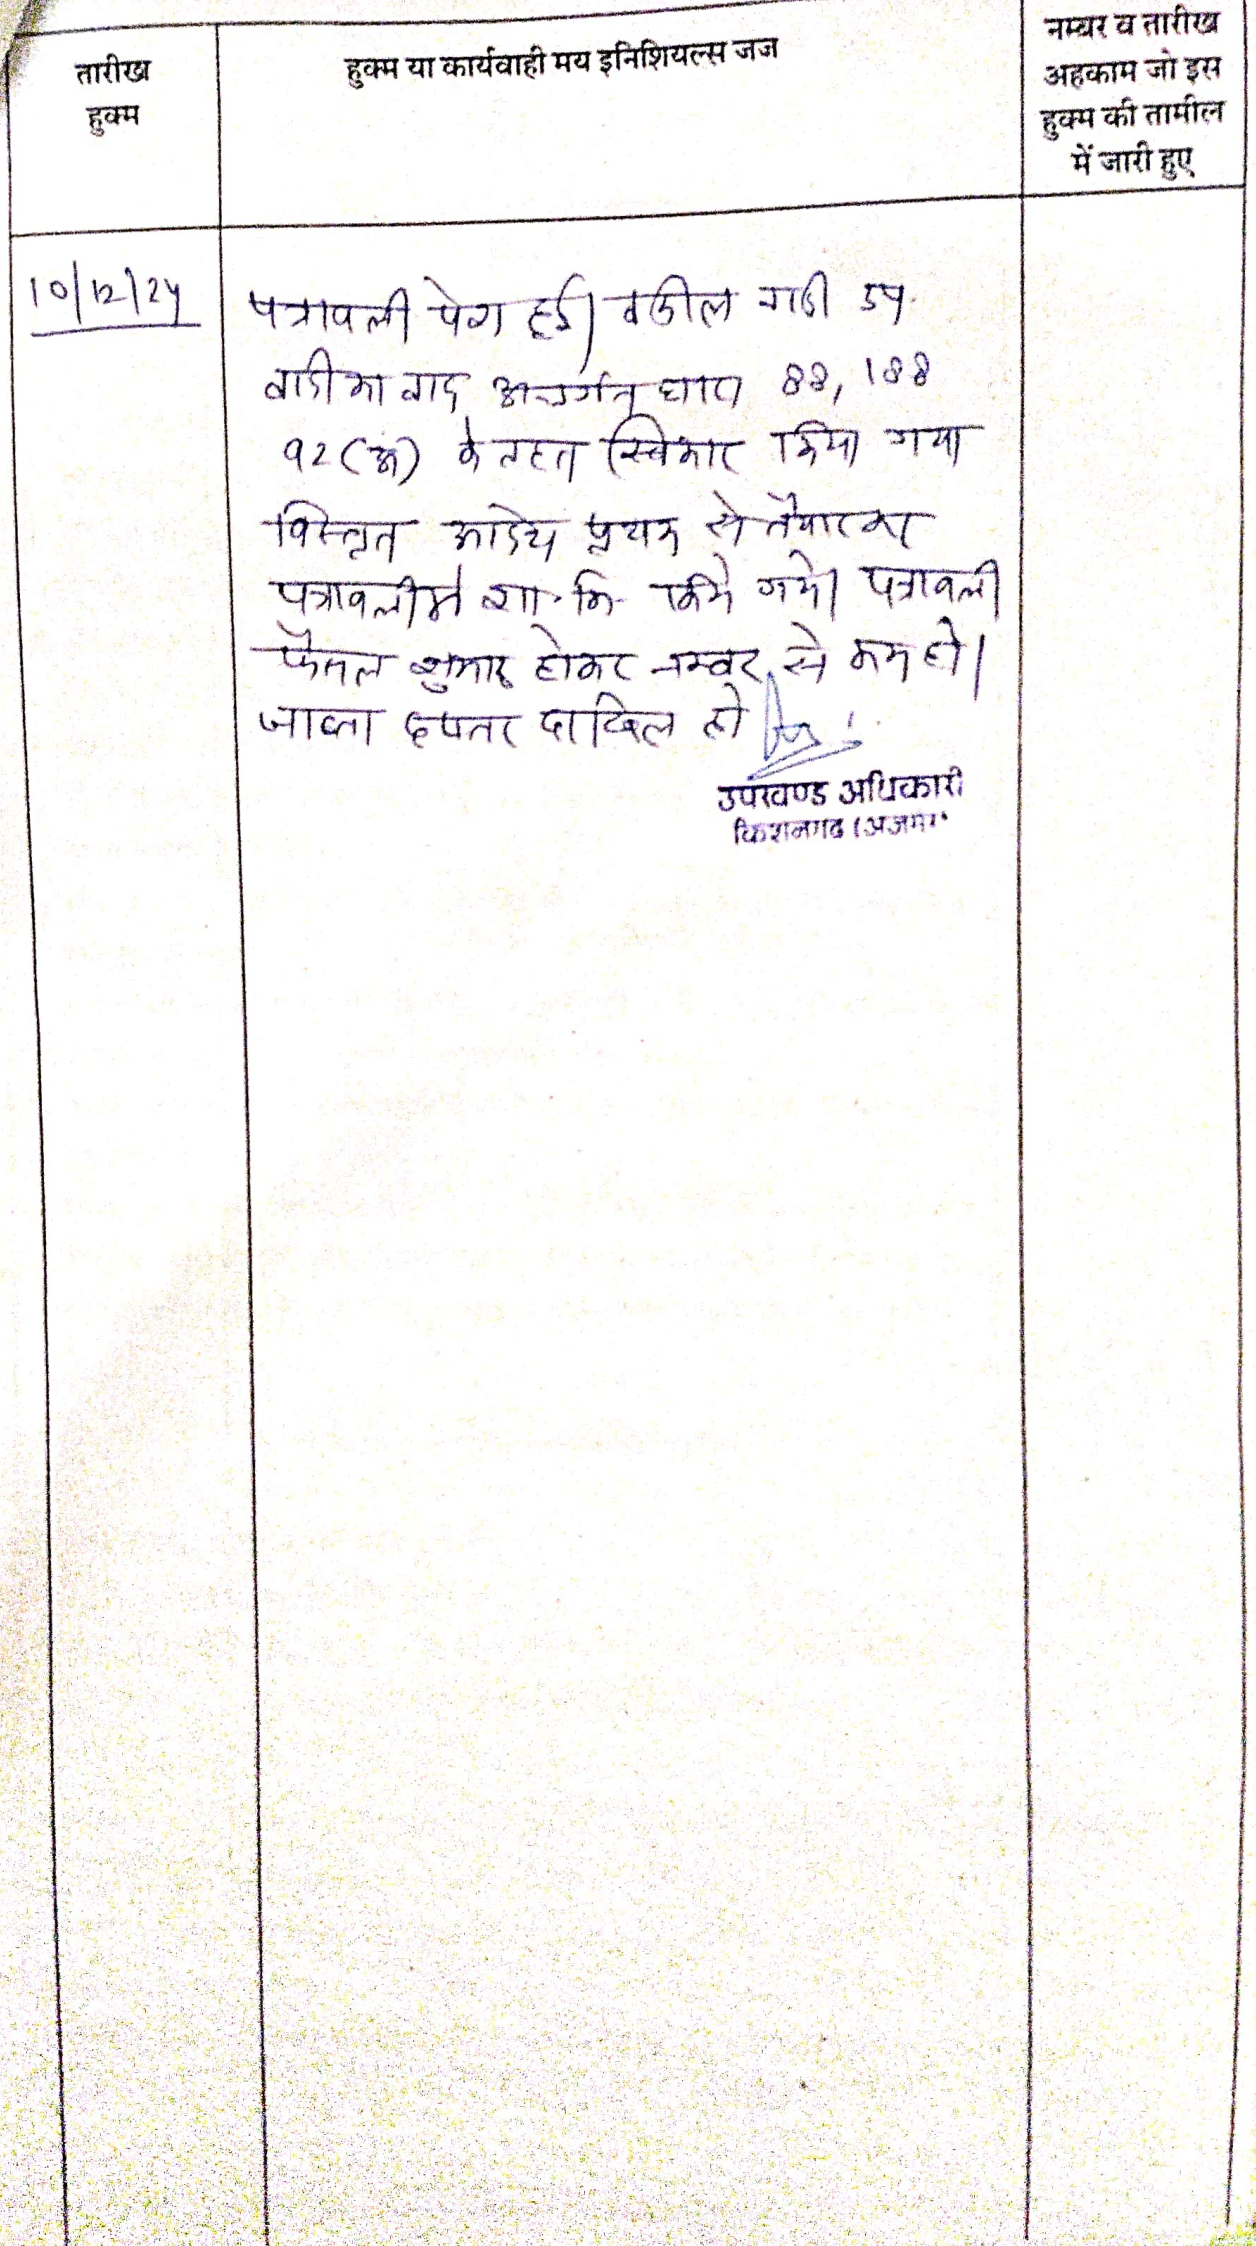 तारीख
हुक्म
हुक्म या कार्यवाही मय इनिशियल्स जज
नम्बर व तारीख
अहकाम जो इस
हुक्म की तामील
में जारी हुए
10/12/24
पत्रावली पेश हुई। वकील वादी उप.
वादी का वाद अन्तर्गत धारा 88, 188
92(अ) के तहत स्विकार किया गया
विस्तृत आदेश पृथक से तैयार कर
पत्रावली में शा. मि. किये गये। पत्रावली
फैसल शुमार होकर नम्बर से कम हो।
जाब्ता दफ्तर दाखिल हो
उपखण्ड अधिकारी
किशनगढ (अजमेर